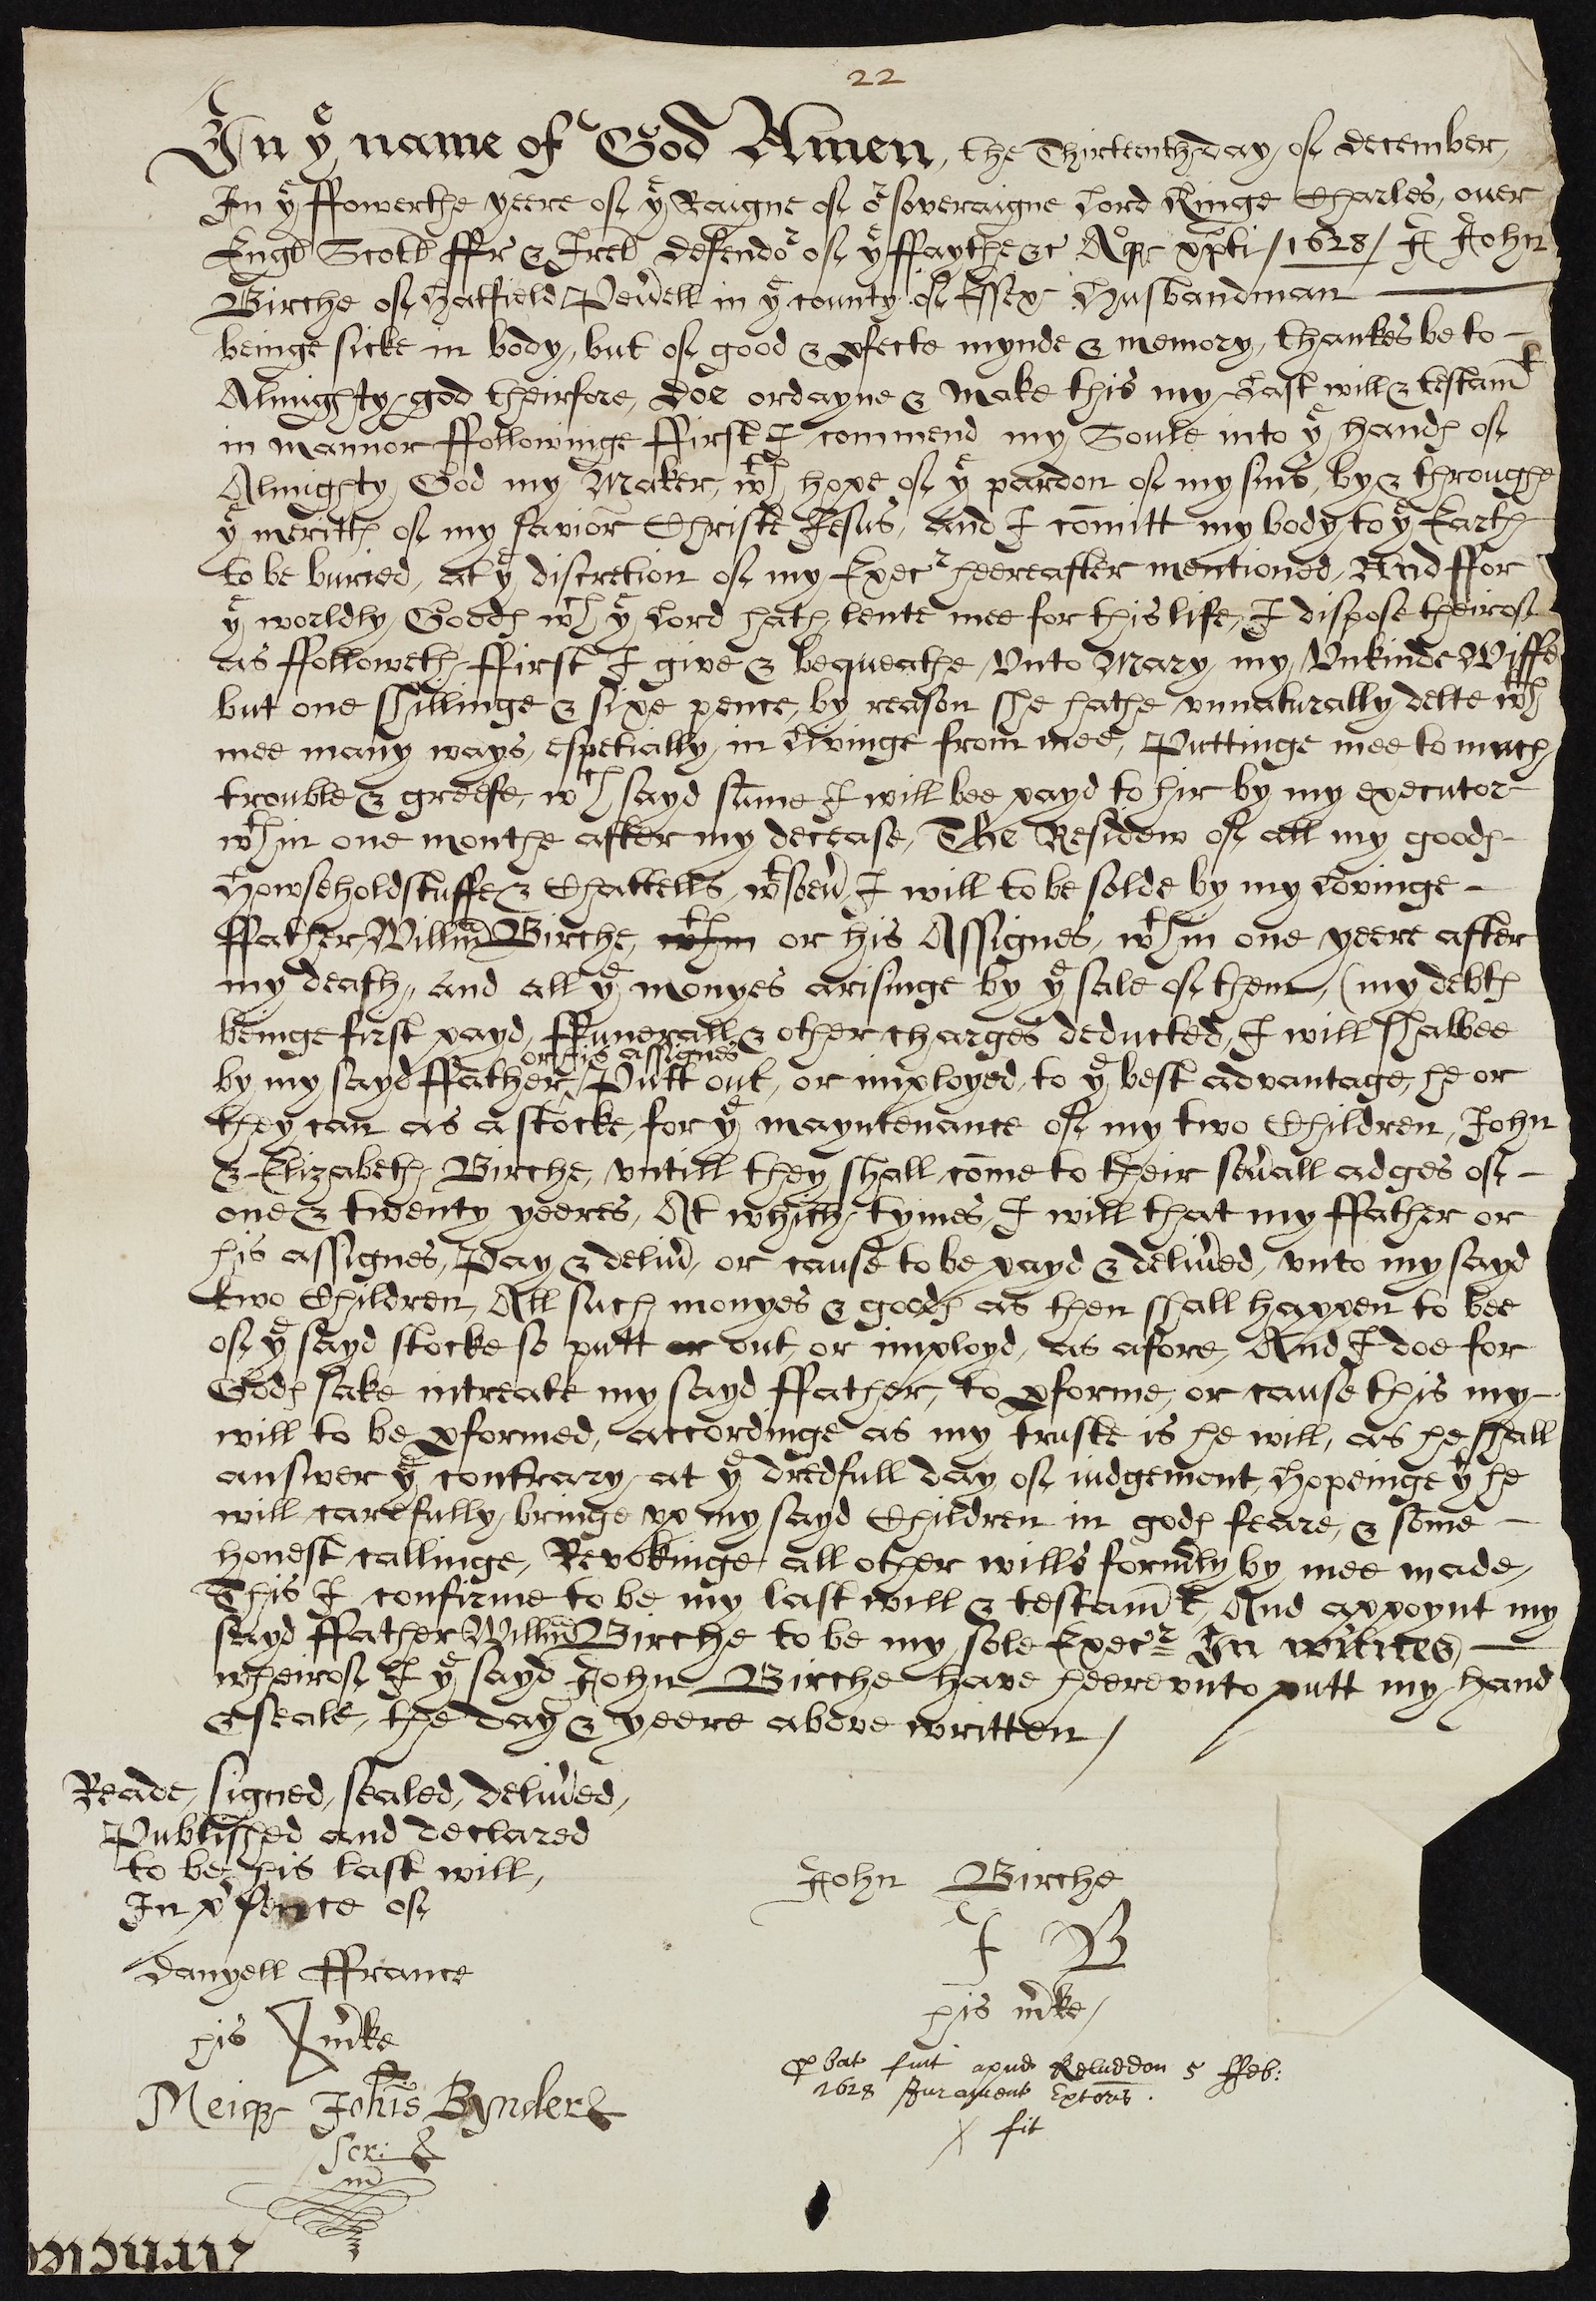 22
In ye name of God Amen, the Thirteenth day of december,
In ye ffowerthe yeere of ye Raigne of or soveraigne Lord Kinge Charles, over
Engl Scotl ffr & Irel defendor of ye ffaythe &c Aoqe xpti /1628/ I John
Birche of Hatfield Pevrell in ye county of Essex Husbandman
beinge sicke in body, but of good & pfecte mynde & memory, thankes be to
Almighty god theirfore, doe ordayne & make this my Last will & testamt
in mannor ffollowinge ffirst I commend my Soule into ye handes of
Almighty God my Maker, wth hope of ye pardon of my sins, by & throughe
ye merittes of my savior Christe Jesus, And I comitt my body to ye Earth
to be buried, at ye discretion of my Execr heereafter mentioned, And ffor
ye worldly Goodes wch ye Lord hath lente mee for this life, I dispose theirof
as ffolloweth, ffirst I give & bequeathe vnto Mary my vnkinde Wiffe
but one shillinge & sixe pence, by reason she hathe vnnaturally delte wth
mee many ways, espetially in Livinge from mee, Puttinge mee to much
trouble & greefe, wch sayd sume I will bee payd to hir by my executor
wthin one monthe after my decease, The Residew of all my goodes
Howseholdstuffe & Chattells, wtsoevr, I will to be solde by my Lovinge
ffather Willm Birche, wthin or his Assignes, wthin one yeere after
my death, and all ye monyes arisinge by ye sale of them, (my debtes
beinge first payd, ffunerall & other charges deducted, I will shalbee
or his assignes
by my sayd ffather, Putt out, or imployed, to ye best advantage, he or
they can as a stocke, for ye mayntenance of my two Children, John
& Elizabeth Birche, vntill they shall come to their sevrall adges of
one & twenty yeeres, At which tymes, I will that my ffather or
his assignes, Pay & delivr, or cause to be payd & delivred, vnto my sayd
two Children, All such monyes & goodes as then shall happen to bee
of ye sayd stocke so putt or out, or imployd, as afore, And I doe for
Godes sake intreate my sayd ffather, to pforme, or cause this my
will to be pformed, accordinge as my truste is he will, as he shall
answer ye contrary at ye dredfull day of iudgement, Hopeinge yt he
will carefully bringe vp my sayd Children in godes feare, & some
honest callinge, Revokinge all other wills formrly by mee made,
This I confirme to be my last will & testamt, And appoynt my
sayd ffather Willm Birche to be my sole Execr In witnes
wheirof I ye sayd John Birche have heerevnto putt my hand
& seale, the day & yeere above written /
Reade, signed, sealed, delivred,
Published and declared
to be his last will,
In psence of
Danyell ffrance
his mrke
Meiqe Johis Bynder
scr:
John Birche
I B
his mrke /
pbat fuit apud Kelvddon 5 ffeb:
1628 Jurament Extoris.
fit